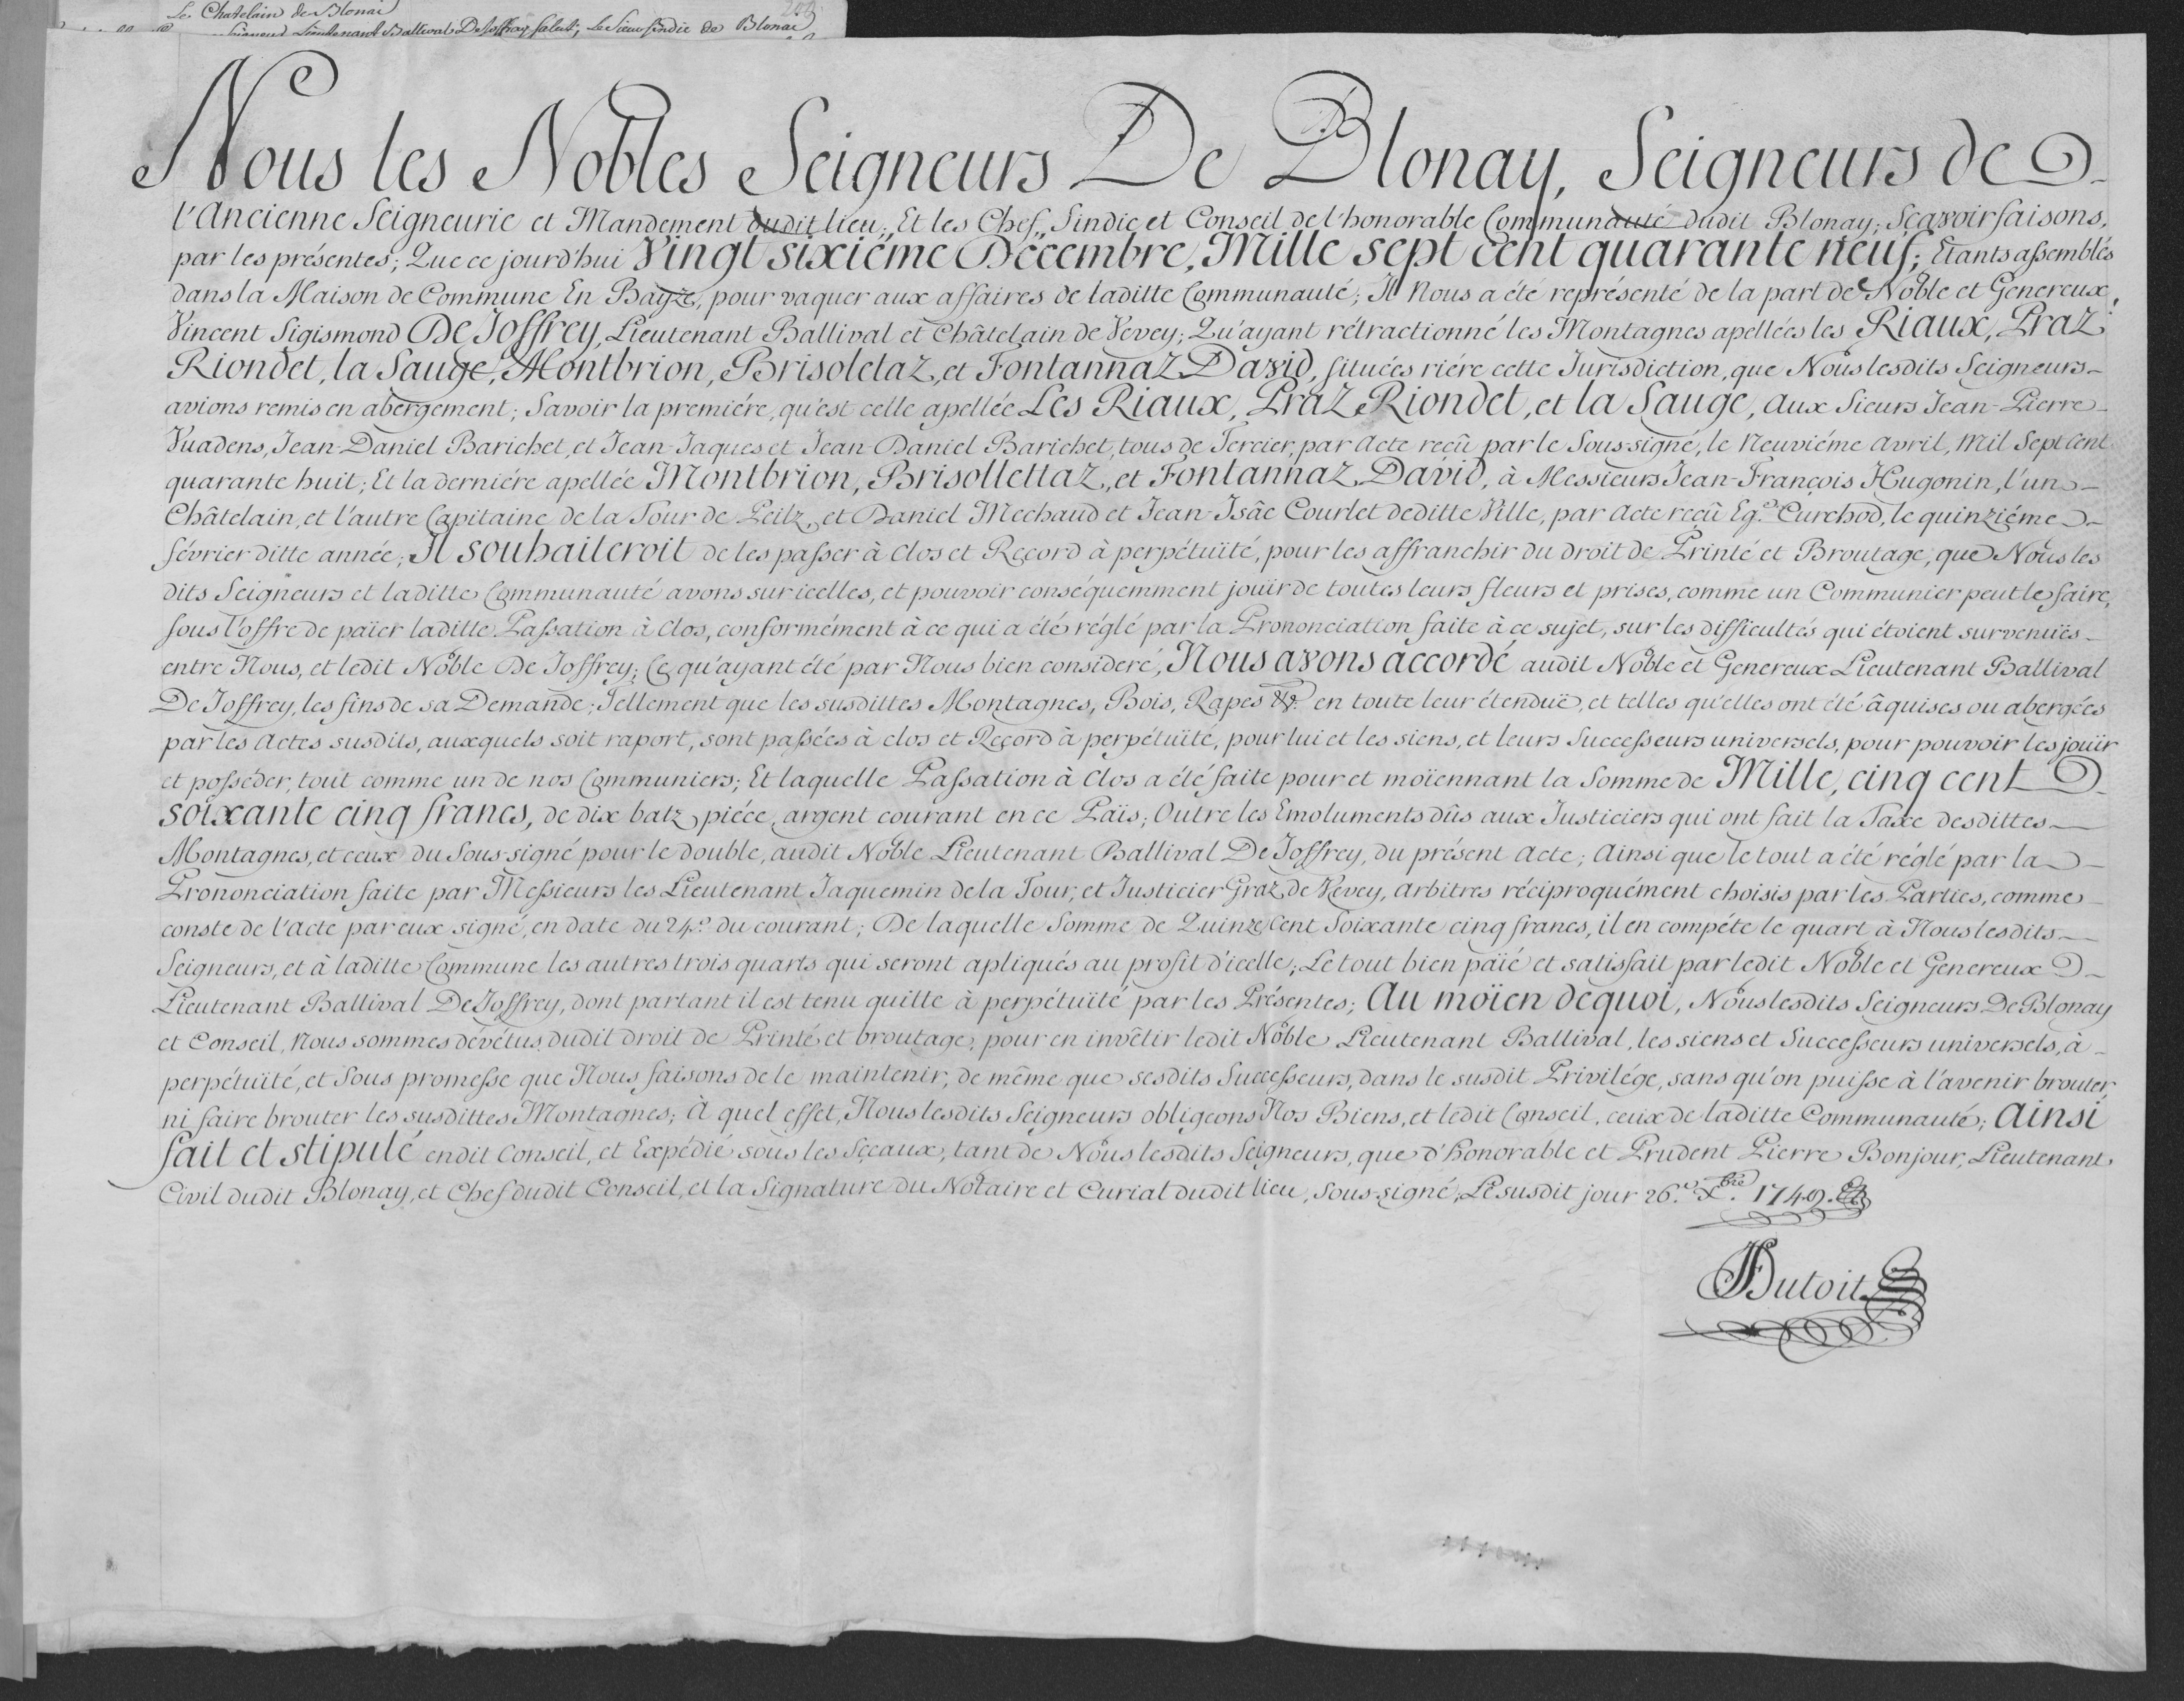 Le Chatelain de Blonai
Lieutenant Ballival De Joffrey salut; Le Sieur sindic de Blonai
Nous les Nobles Seigneurs De Blonay, Seigneurs de
l'Ancienne Seigneurie et Mandement dudit lieu; Et les Chef, Sindic et Conseil de l'honorable Communauté dudit Blonay; Sçavoir faisons,
par les présentes; Que ce jourd'hui Vingt sixiéme Décembre, Mille sept cent quarante neuf; Etants assemblés
dans la Maison de Commune En Bayze, pour vaquer aux affaires de laditte Communauté; Il Nous a été représenté de la part de Noble et Genereux,
Vincent Sigismond De Joffrey, Lieutenant Ballival et Châtelain de Vevey; Qu'ayant rétractionné les Montagnes apellées les Riaux, Praz
Riondet, la Sauge, Montbrion, Brisoletaz, et Fontannaz David, situées riére cette Jurisdiction, que Nous lesdits Seigneurs
avions remis en abergement; Savoir la premiére, qu'est celle apellée Les Riaux, Praz Riondet, et la Sauge, aux Sieurs Jean-Pierre
Vuadens, Jean-Daniel Barichet, et Jean-Jaques et Jean Daniel Barichet, tous de Tercier, par Acte reçû par le Sous-signé, le Neuviéme Avril, Mil Sept Cent
quarante huit; Et la derniére apellée Montbrion, Brisollettaz, et Fontannaz David, à Messieurs Jean-François Hugonin, l'un
Châtelain, et l'autre Capitaine de la Tour de Peilz, et Daniel Mechaud et Jean-Isâc Courlet deditte Ville, par Acte reçû Eg.e Curchod, le quinziéme
février ditte année; Il souhaiteroit de les passer à clos et Record à perpétuïté, pour les affranchir du droit de Printé et Broutage, que Nous les
dits Seigneurs et laditte Communauté avons sur icelles, et pouvoir conséquemment jouïr de toutes leurs fleurs et prises, comme un Communier peut le faire,
sous l'offre de païer laditte Passation à Clos, conformément à ce qui a été réglé par la Prononciation faite à ce sujet, sur les difficultés qui étoient survenuës
entre Nous, et ledit Noble De Joffrey; Ce qu'ayant été par Nous bien consideré, Nous avons accordé audit Noble et Genereux Lieutenant Ballival
De Joffrey, les fins de sa Demande; Tellement que les susdittes Montagnes, Bois, Rapes &c. en toute leur étenduë, et telles qu'elles ont été âquises ou abergées
par les Actes susdits, auxquels soit raport, sont passées à clos et Record à perpétuïté, pour lui et les siens, et leurs Successeurs universels, pour pouvoir les jouïr
et posséder, tout comme un de nos Communiers; Et laquelle Passation à Clos a été faite pour et moïennant la Somme de Mille, cinq cent
soixante cinq francs, de dix batz piéce, argent courant en ce Païs; Outre les Emoluments dûs aux Justiciers qui ont fait la Taxe desdittes
Montagnes, et ceux du Sous-signé pour le double, audit Noble Lieutenant Ballival De Joffrey, du présent Acte; Ainsi que le tout a été réglé par la
Prononciation faite par Messieurs les Lieutenant Jaquemin de la Tour, et Justicier Graz, de Vevey, Arbitres réciproquément choisis par les Parties, comme
conste de l'Acte par eux signé, en date du 24.e du courant; De laquelle Somme de Quinze Cent Soixante cinq francs, il en compéte le quart à Nous lesdits
Seigneurs, et à laditte Commune les autres trois quarts qui seront apliqués au profit d'icelle; Le tout bien païé et satisfait par ledit Noble et Genereux
Lieutenant Ballival De Joffrey, dont partant il est tenu quitte à perpétuïté par les Présentes; Au moïen dequoi, Nous lesdits Seigneurs De Blonay
et Conseil, Nous sommes dévétus dudit droit de Printé et broutage, pour en invêtir ledit Noble Lieutenant Ballival, les siens et Successeurs universels, à
perpétuïté, et Sous promesse que Nous faisons de le maintenir, de même que sesdits Successeurs, dans le susdit Privilége, sans qu'on puisse à l'avenir brouter,
ni faire brouter les susdittes Montagnes; à quel effet, Nous lesdits Seigneurs obligeons Nos Biens, et ledit Conseil, ceux de laditte Communauté; Ainsi
fait et stipulé endit Conseil, et Expédié sous les Sceaux, tant de Nous lesdits Seigneurs, que d'honorable et Prudent Pierre Bonjour, Lieutenant
Civil dudit Blonay, et Chef dudit Conseil, et la Signature du Notaire et Curial dudit lieu, Sous-signé, Le susdit jour 26.e Xbre. 1749.
Dutoit